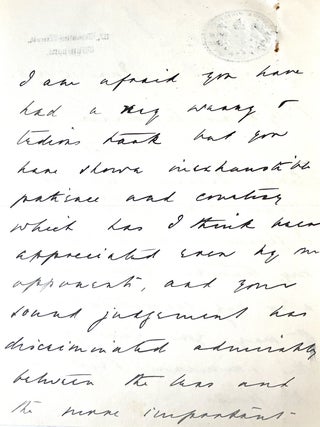 I am afraid you have
had a very weary &
tedious task but you
have shown inexhaustible
patience and courtesy
which has I think been
appreciated even by my
opponents, and your
sound judgement has
discriminated admirably
between the less and
the more important